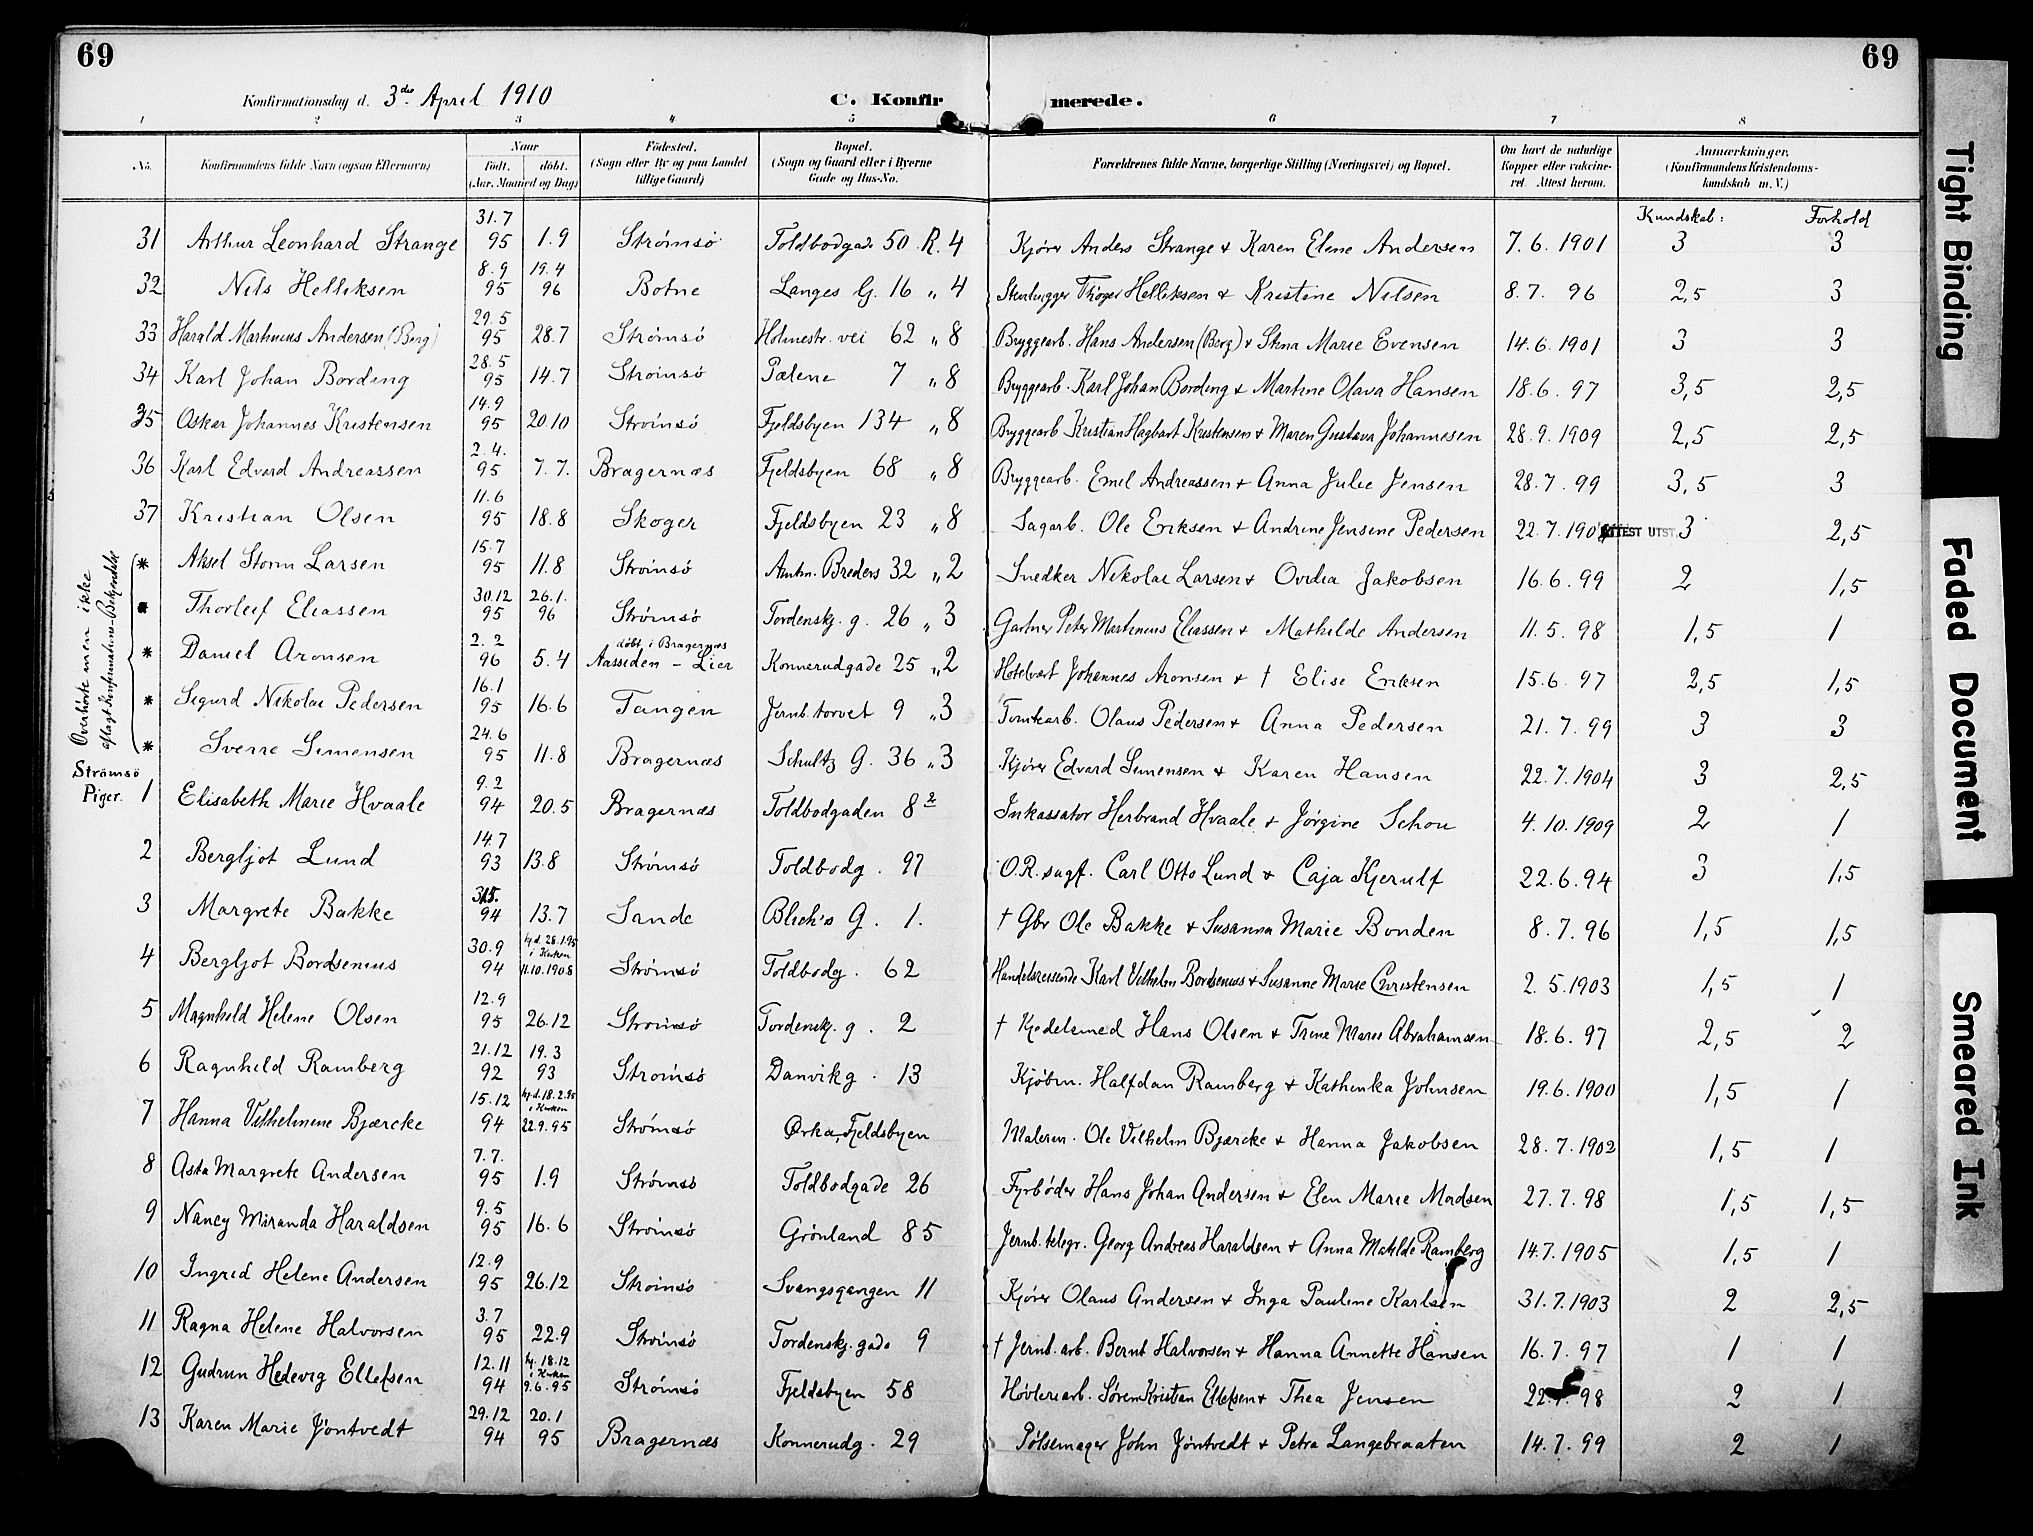 69
69
Konfirmationsdag d. 3die April 1910
C. Konfirmerede.
1 2 3 4 5 6 7 8
No. Konfirmandens fulde Navn (ogsaa Efternavn) Naar født. døbt. (Aar, Maaned og Dag) Fødested. (Sogn eller By og paa Landet tillige Gaard) Bopæl. (Sogn og Gaard eller i Byerne Gade og Hus-No. Forældrenes fulde Navne, borgerlige Stilling (Næringsvei) og Bopæl. Om havt de naturlige Kopper eller vaccineret. Attest herom. Anmærkninger. (Konfirmandens Kristendomskundskab m. V.)
Kundskab: Forhold
31 Arthur Leonhard Strange 31.7 95 1.9 Strømsø Toldbodgade 50 R. 4 Kjører Anders Strange & Karen Elene Andersen 7.6.1901 3 3
32 Nils Helliksen 8.9 95 19.4 96 Botne Langes G. 16 " 4 Stenhugger Helliksen & Kristine Nilsen 8.7. 96 2,5 3
33 Harald Martinius Andersen (Berg) 29.5 95 28.7 Strømsø Holmestr. vei 62 " 8 Bryggearb. Hans Andersen (Berg) & Stina Marie Evensen 14.6.1901 3 3
34 Karl Johan Bording 28.5 95 14.7 Strømsø Pælene 7 " 8 Bryggearb. Karl Johan Bording & Martine Olava Hansen 18.6. 97 3,5 2,5
35 Oskar Johannes Kristensen 14.9 95 20.10 Strømsø Fjeldsbyen 134 " 8 Bryggearb Kristian Hagbart Kristensen & Maren Gustava Johannesen 28.9.1909 2,5 2,5
36 Karl Edvard Andreassen 2.4. 95 7.7. Bragernæs Fjeldsbyen 68 " 8 Bryggearb. Emil Andreassen & Anna Julie Jensen 28.7.99 3,5 3
37 Kristian Olsen 11.6 95 18.8 Skoger Fjeldsbyen 23 " 8 Sagarb. Ole Eriksen & Andrine Jensine Pedersen 22.7.190 ATTEST UTST. 3 2,5
Overhørte men ikke aflagt Konfirmations-Bekjendelse
* Aksel Storm Larsen 15.7 95 11.8 Strømsø Amtm. Breders 32 " 2 Snedker Nikolai Larsen & Ovidia Jakobsen 16.6.99 2 1,5
* Thorleif Eliassen 30.12 95 26.1. 96 Strømsø Tordenskj. g. 26 " 3 Gartner Peter Martinius Eliassen & Mathilde Andersen 11.5.98 1,5 1
* Daniel Aronsen 2.2 96 5.4 døbt i Bragernæs Aassiden - Lier Konnerudgade 25 " 2 Hotelvært Johannes Aronsen & † Elise Eriksen 15.6.97 2,5 1,5
* Sigurd Nikolai Pedersen 16.1 95 16.6 Tangen Jernb. torvet 9 " 3 Tomtearb. Olaus Pedersen & Anna Pedersen 21.7.99 3 3
* Sverre Simensen 24.6 95 11.8 Bragernæs Schultz G. 36 " 3 Kjører Edvard Simensen & Karen Hansen 22.7.1904 3 2,5
Strømsø Piger.
1 Elisabeth Marie Hvaale 9.2 94 20.5 Bragernæs Toldbodgaden 8 2 Inkassator Herbrand Hvaale & Jørgine Schou 4.10.1909 2 1
2 Bergljot Lund 14.7 93 13.8 Strømsø Toldbodg. 97 O.R. sagf. Carl Otto Lund & Caja Kjerulf 22.6.94 3 1,5
3 Margrete Bakke 94 13.7 Sande Blich's G. 1. † Gbr Ole Bakke & Susanna Marie Bonden 8.7.96 1,5 1,5
4 Bergljot Bordsenius 30.9 94 hj.d. 28.1.95 i Kirken 11.10.1908 Strømsø Toldbodg. 62 Handelsreisende Karl Vilhelm Bordsenius & Susanne Marie Christensen 2.5.1903 1,5 1
5 Magnhild Helene Olsen 12.9 95 26.12 Strømsø Tordenskj. g. 2 † Kjedelsmed Hans Olsen & Trine Marie Abrahamsen 18.6.97 2,5 2
6 Ragnhild Ramberg 21.12 92 19.3 93 Strømsø Danvikg. 13 Kjøbm. Halfdan Ramberg & Kathinka Johnsen 19.6.1900 1,5 1
7 Hanna Vilhelmine Bjærcke 15.12 94 hj.d. 18.2.95 i Kirken 22.9.95 Strømsø Ørka, Fjeldsbyen Malerm. Ole Vilhelm Bjærcke & Hanna Jakobsen 28.7.1902 1,5 1
8 Asta Margrete Andersen 7.7. 95 1.9 Strømsø Toldbodgade 26 Fyrbøder Hans Johan Andersen & Elen Marie Madsen 27.7.98 1,5 1,5
9 Nancy Miranda Haraldsen 9.5 95 16.6 Strømsø Grønland 85 Jernb. telegr. Georg Andreas Haraldsen & Anna Matilde Ramberg 14.7.1905 1,5 1
10 Ingrid Helene Andersen 12.9 95 26.12 Strømsø Svangsgangen 11 Kjører Olaus Andersen & Inga Pauline Karlsen 31.7.1903 2 2,5
11 Ragna Helene Halvorsen 3.7 95 22.9 Strømsø Tordenskj. gade 9 † Jernb. arb. Bernt Halvorsen & Hanna Annette Hansen 16.7.97 1 1
12 Gudrun Hedevig Ellefsen 12.11 94 hj. 18.12 i Kirken 9.6.95 Strømsø Fjeldsbyen 58 Høvleriarb. Søren Kristian Ellefsen & Thea Jensen 22. 98 2 1
13 Karen Marie Jøntvedt 29.12 94 20.1 95 Bragernæs Konnerudg. 29 Pølsemager John Jøntvedt & Petra Langebraaten 14.7.99 2 1
Tight Binding
Faded Document
Smeared Ink